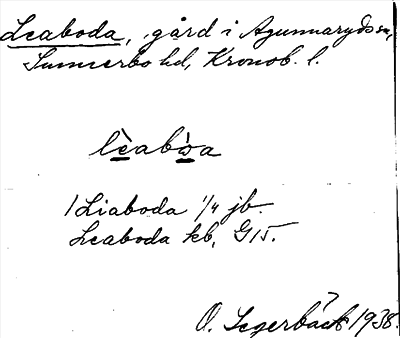 Leaboda, gård i Agunnaryds sn,
Sunnerbo hd, Kronob. l.
lèabòa
1 Liaboda 1/4 jb.
Leaboda kb, G15.
O. Segerbäck 1938.